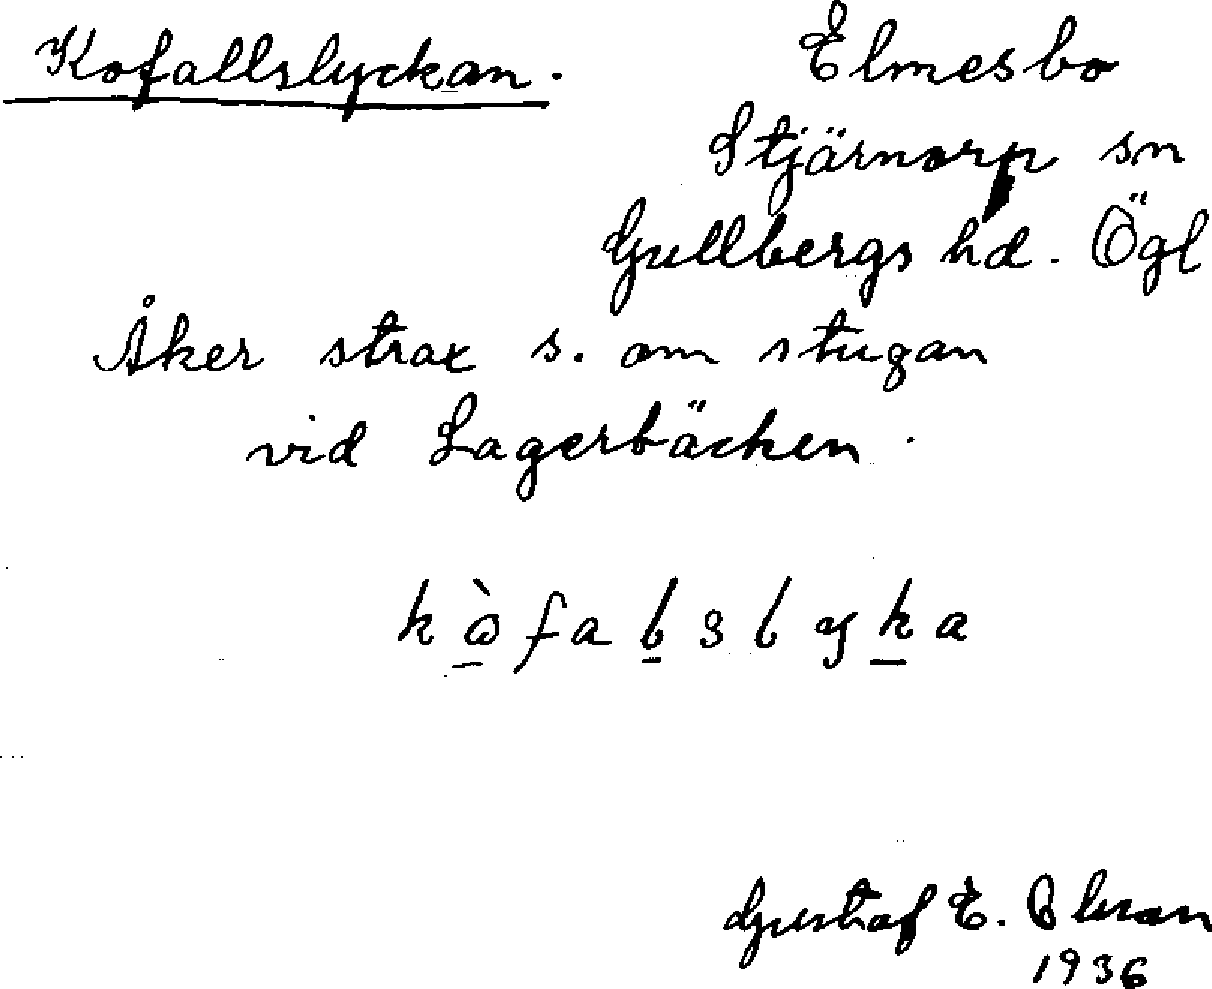 Kofallslyckan. Elmesbo
Stjärnorp sn
Gullbergs hd. Ögl
Åker strax s. om stugan
vid Lagerbäcken.
Gustaf E. Olsson
1936